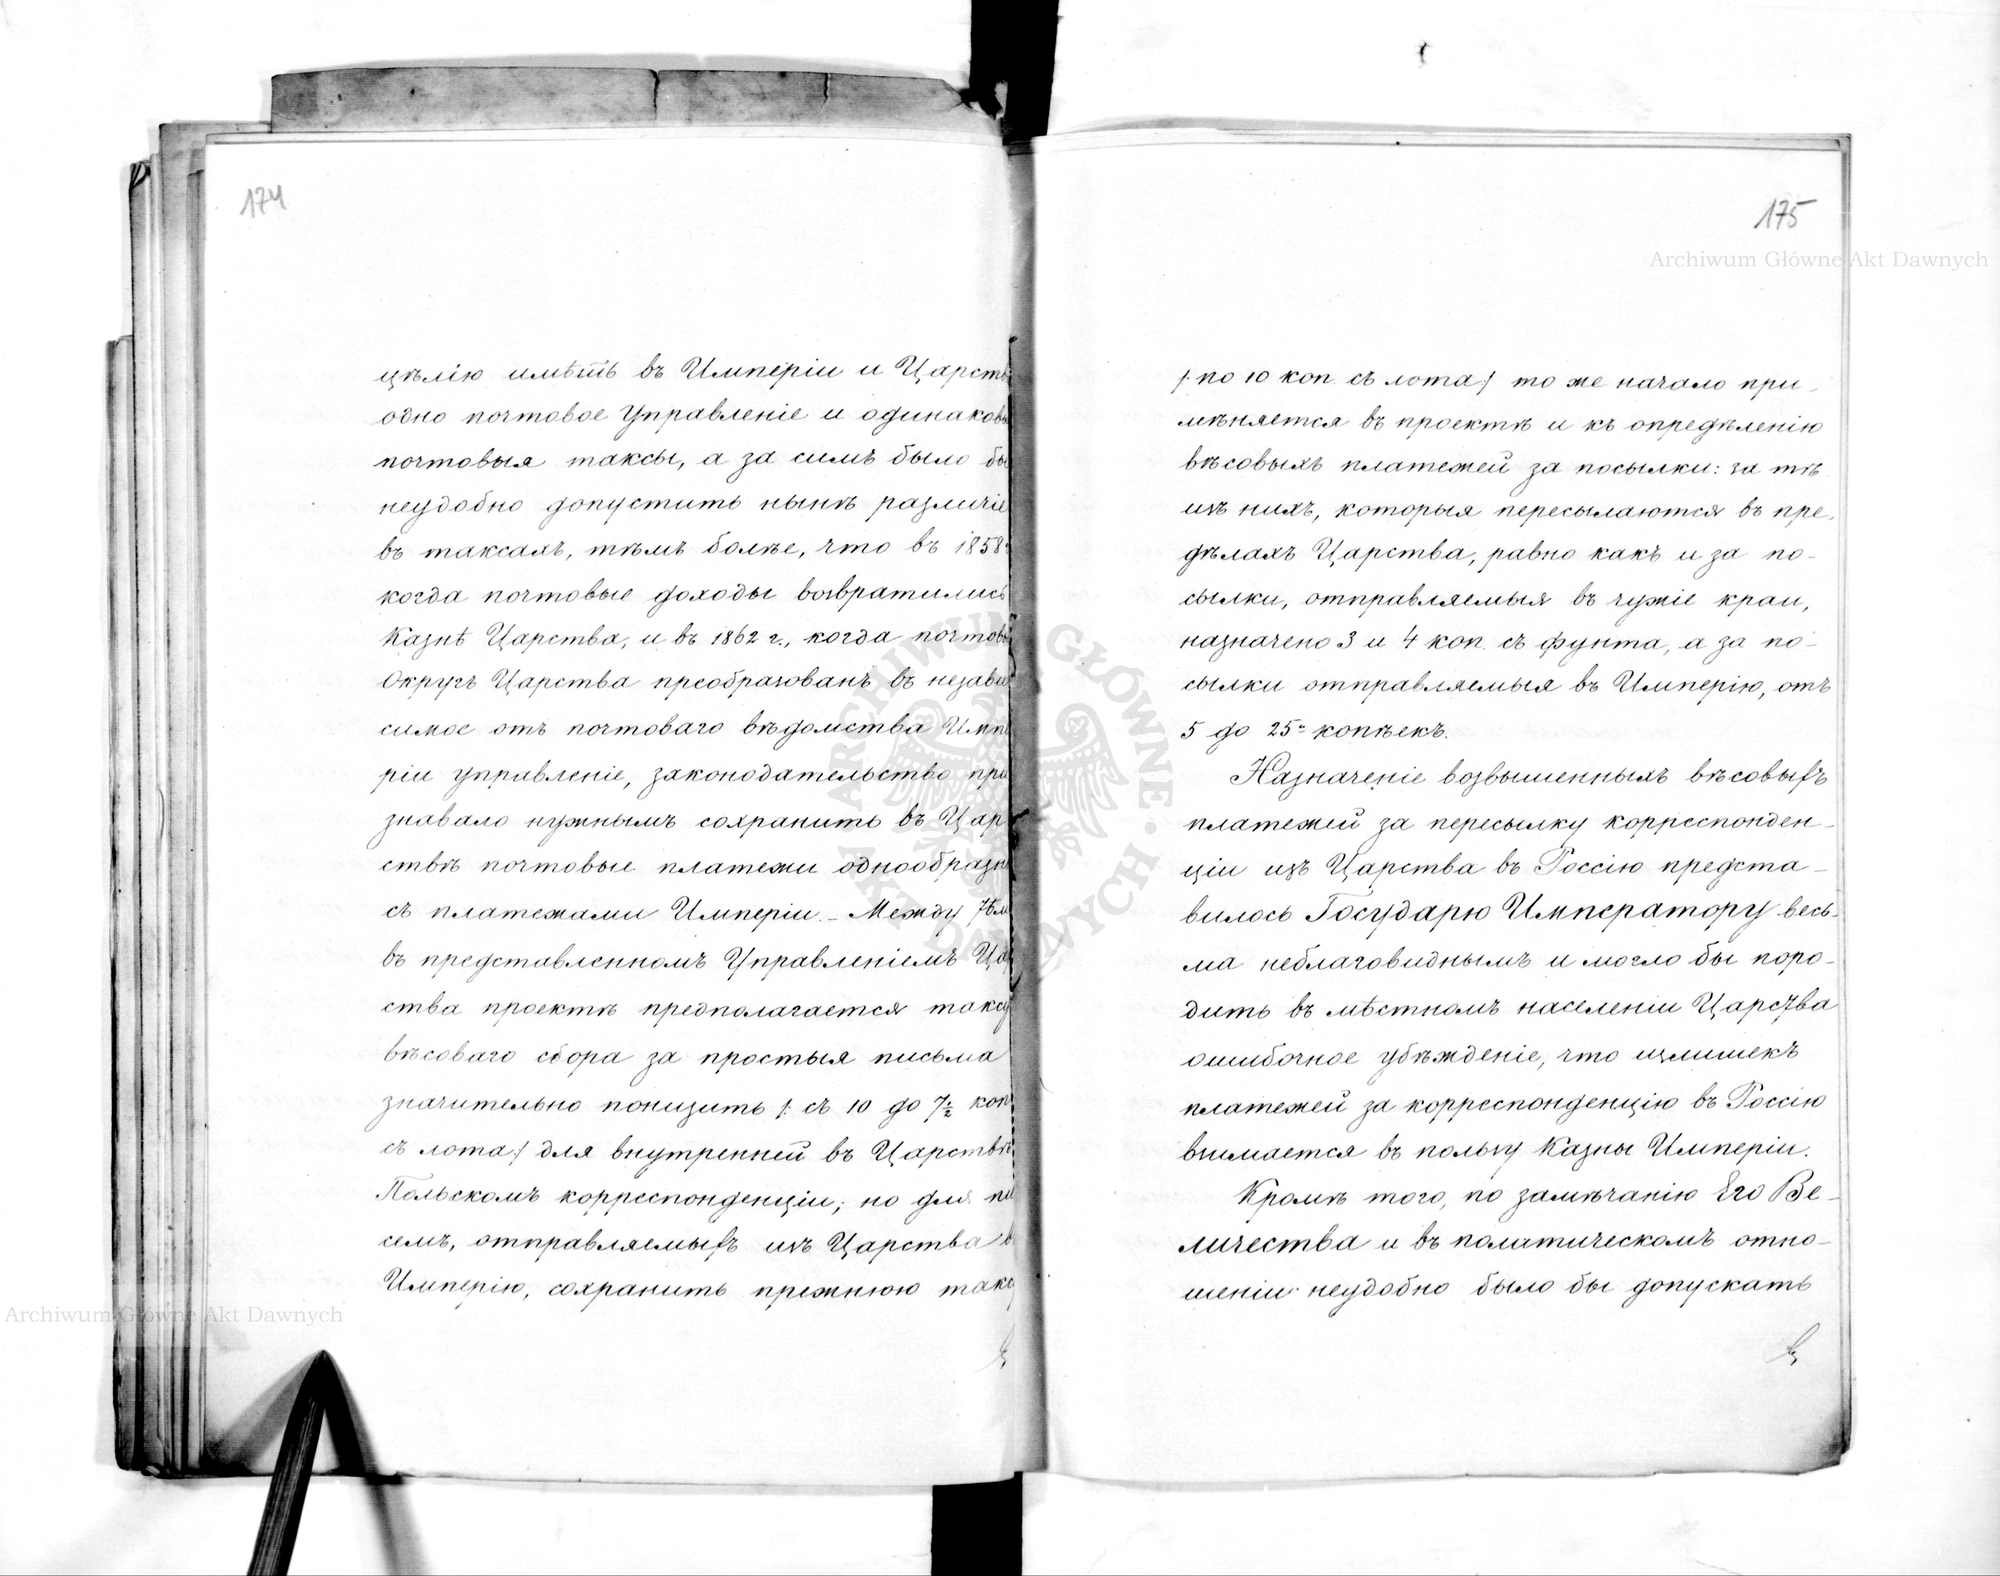 174
цѣлію имѣть въ Имперіи и Царств
одно почтовое Управленіе и одинаковы
почтовыя таксы, а за симъ было бы
неудобно допустить нынѣ различіе
въ таксахъ, тѣмъ болѣе, что въ 1858
когда почтовые доходы возвратились
Казнѣ Царства, и въ 1862 г., когда почтовы
Округъ Царства преобразованъ въ незави
симое отъ почтоваго вѣдомства Импе
ріи управленіе, законодательство при
знавало нужнымъ сохранить въ Цар
ствѣ почтовые платежи однообразны
съ платежами Имперіи. - Между тѣм
въ представленномъ Управленіемъ Цар
ства проектѣ предполагается таксу
вѣсоваго сбора за простыя письма
значительно понизить /: съ 10 до 7½ коп
съ лота:/ для внутренней въ Царствѣ
Польскомъ корреспонденціи; но для пи
семъ, отправляемыхъ изъ Царства в
Имперію, сохранить прежнюю такс
175
/: по 10 коп. съ лота:/ то же начало при-
мѣняется въ проектѣ и къ опредѣленію
вѣсовыхъ платежей за посылки: за тѣ
изъ нихъ, которыя пересылаются въ пре-
дѣлахъ Царства, равно какъ и за по-
сылки, отправляемыя въ чужіе краи,
назначено 3 и 4 коп. съ фунта, а за по-
сылки отправляемыя въ Имперію, отъ
5 до 25и копѣекъ.
Назначеніе возвышенныхъ вѣсовыхъ
платежей за пересылку корреспонден-
ціи изъ Царства въ Россію предста-
вилось Государю Императору весь-
ма неблаговиднымъ и могло бы поро-
дить въ мѣстномъ населеніи Царства
ошибочное убѣжденіе, что излишекъ
платежей за корреспонденцію въ Россію
взимается въ пользу Казны Имперіи.
Кромѣ того, по замѣчанію Его Ве-
личества и въ политическомъ отно-
шеніи неудобно было бы допускать
въ
Archiwum Główne Akt Dawnych
Archiwum Główne Akt Dawnych
ARCHIWUM GŁÓWNE AKT DAWNYCH